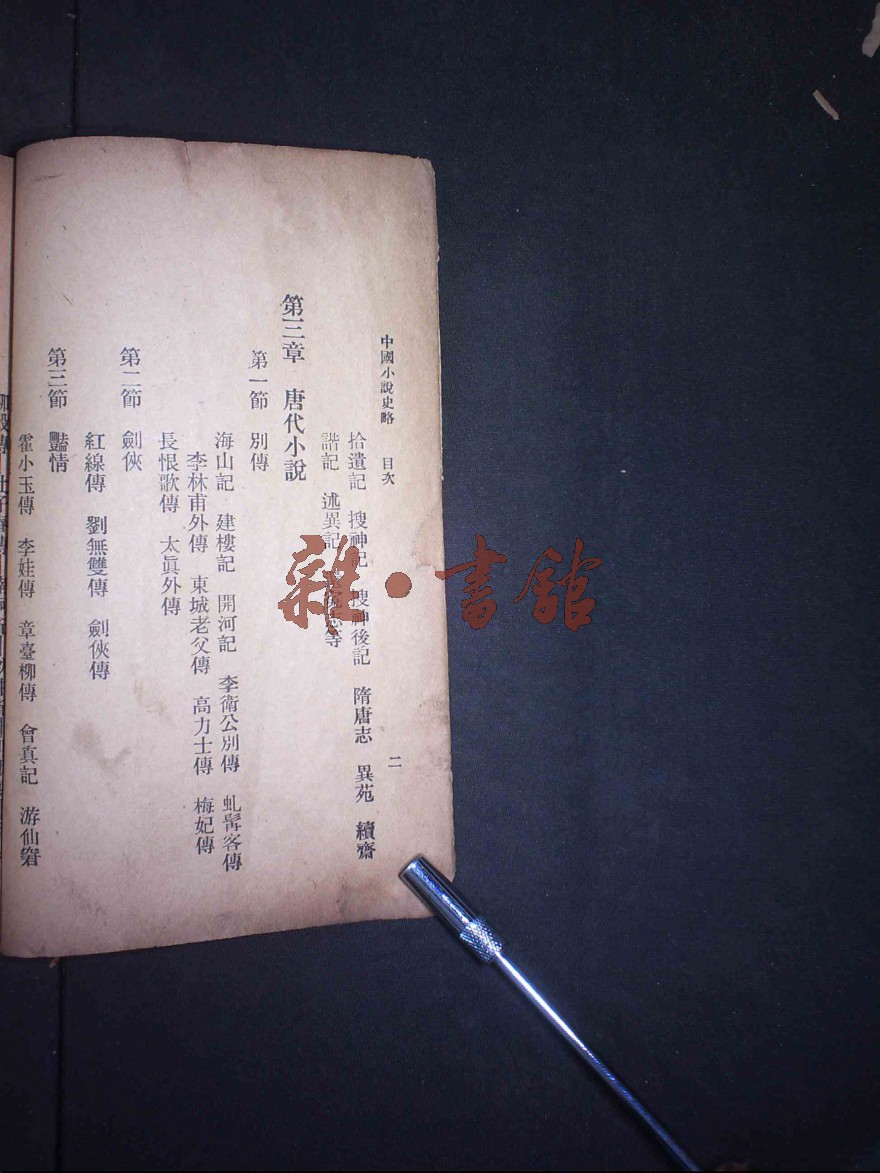 中國小說史略 目次 二
拾遺記 搜神記 搜神後記 隋唐志 異苑 續齋
諧記 述異記 志等
第三章 唐代小說
第一節 別傳
海山記 建樓記 開河記 李衛公別傳 虬髯客傳
李林甫外傳 東城老父傳 高力士傳 梅妃傳
長恨歌傳 太眞外傳
第二節 劍俠
紅線傳 劉無雙傳 劍俠傳
第三節 豔情
霍小玉傳 李娃傳 章臺柳傳 會真記 游仙窟
雜·書館